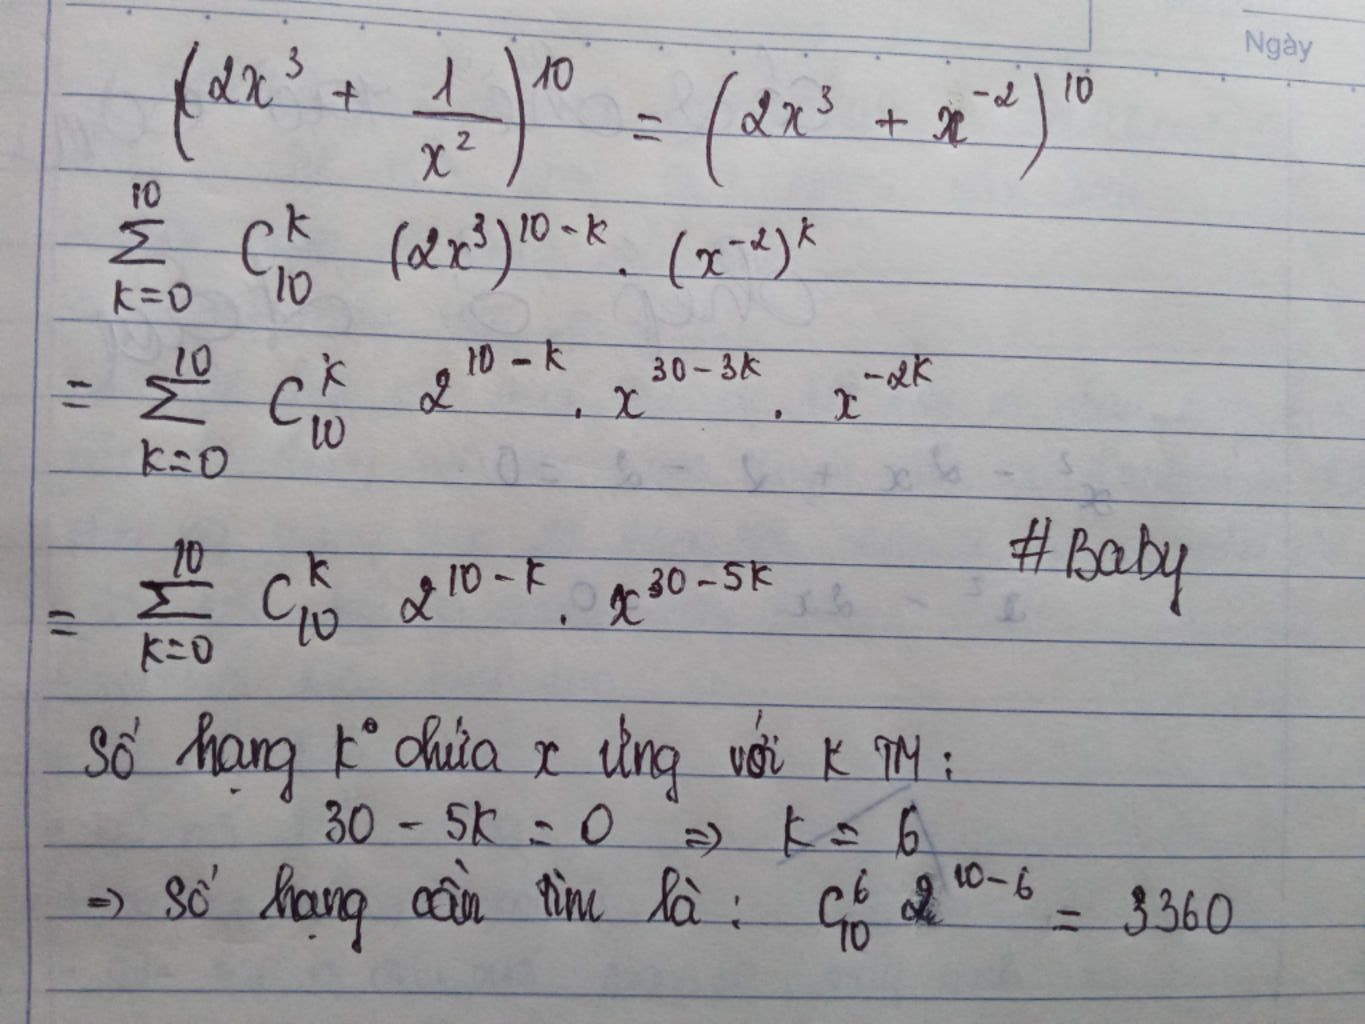 Ngày
(2x³ + 1/x²)¹⁰ = (2x³ + x⁻²)¹⁰
∑_{k=0}^{10} C_{10}^{k} (2x³)^{10-k} . (x⁻²)^k
= ∑_{k=0}^{10} C_{10}^{k} 2^{10-k} . x^{30-3k} . x^{-2k}
= ∑_{k=0}^{10} C_{10}^{k} 2^{10-k} . x^{30-5k}
#Baby
Số hạng k° chứa x ứng với k TM:
30 - 5k = 0 ⇒ k = 6
⇒ Số hạng cần tìm là: C_{10}^{6} 2^{10-6} = 3360